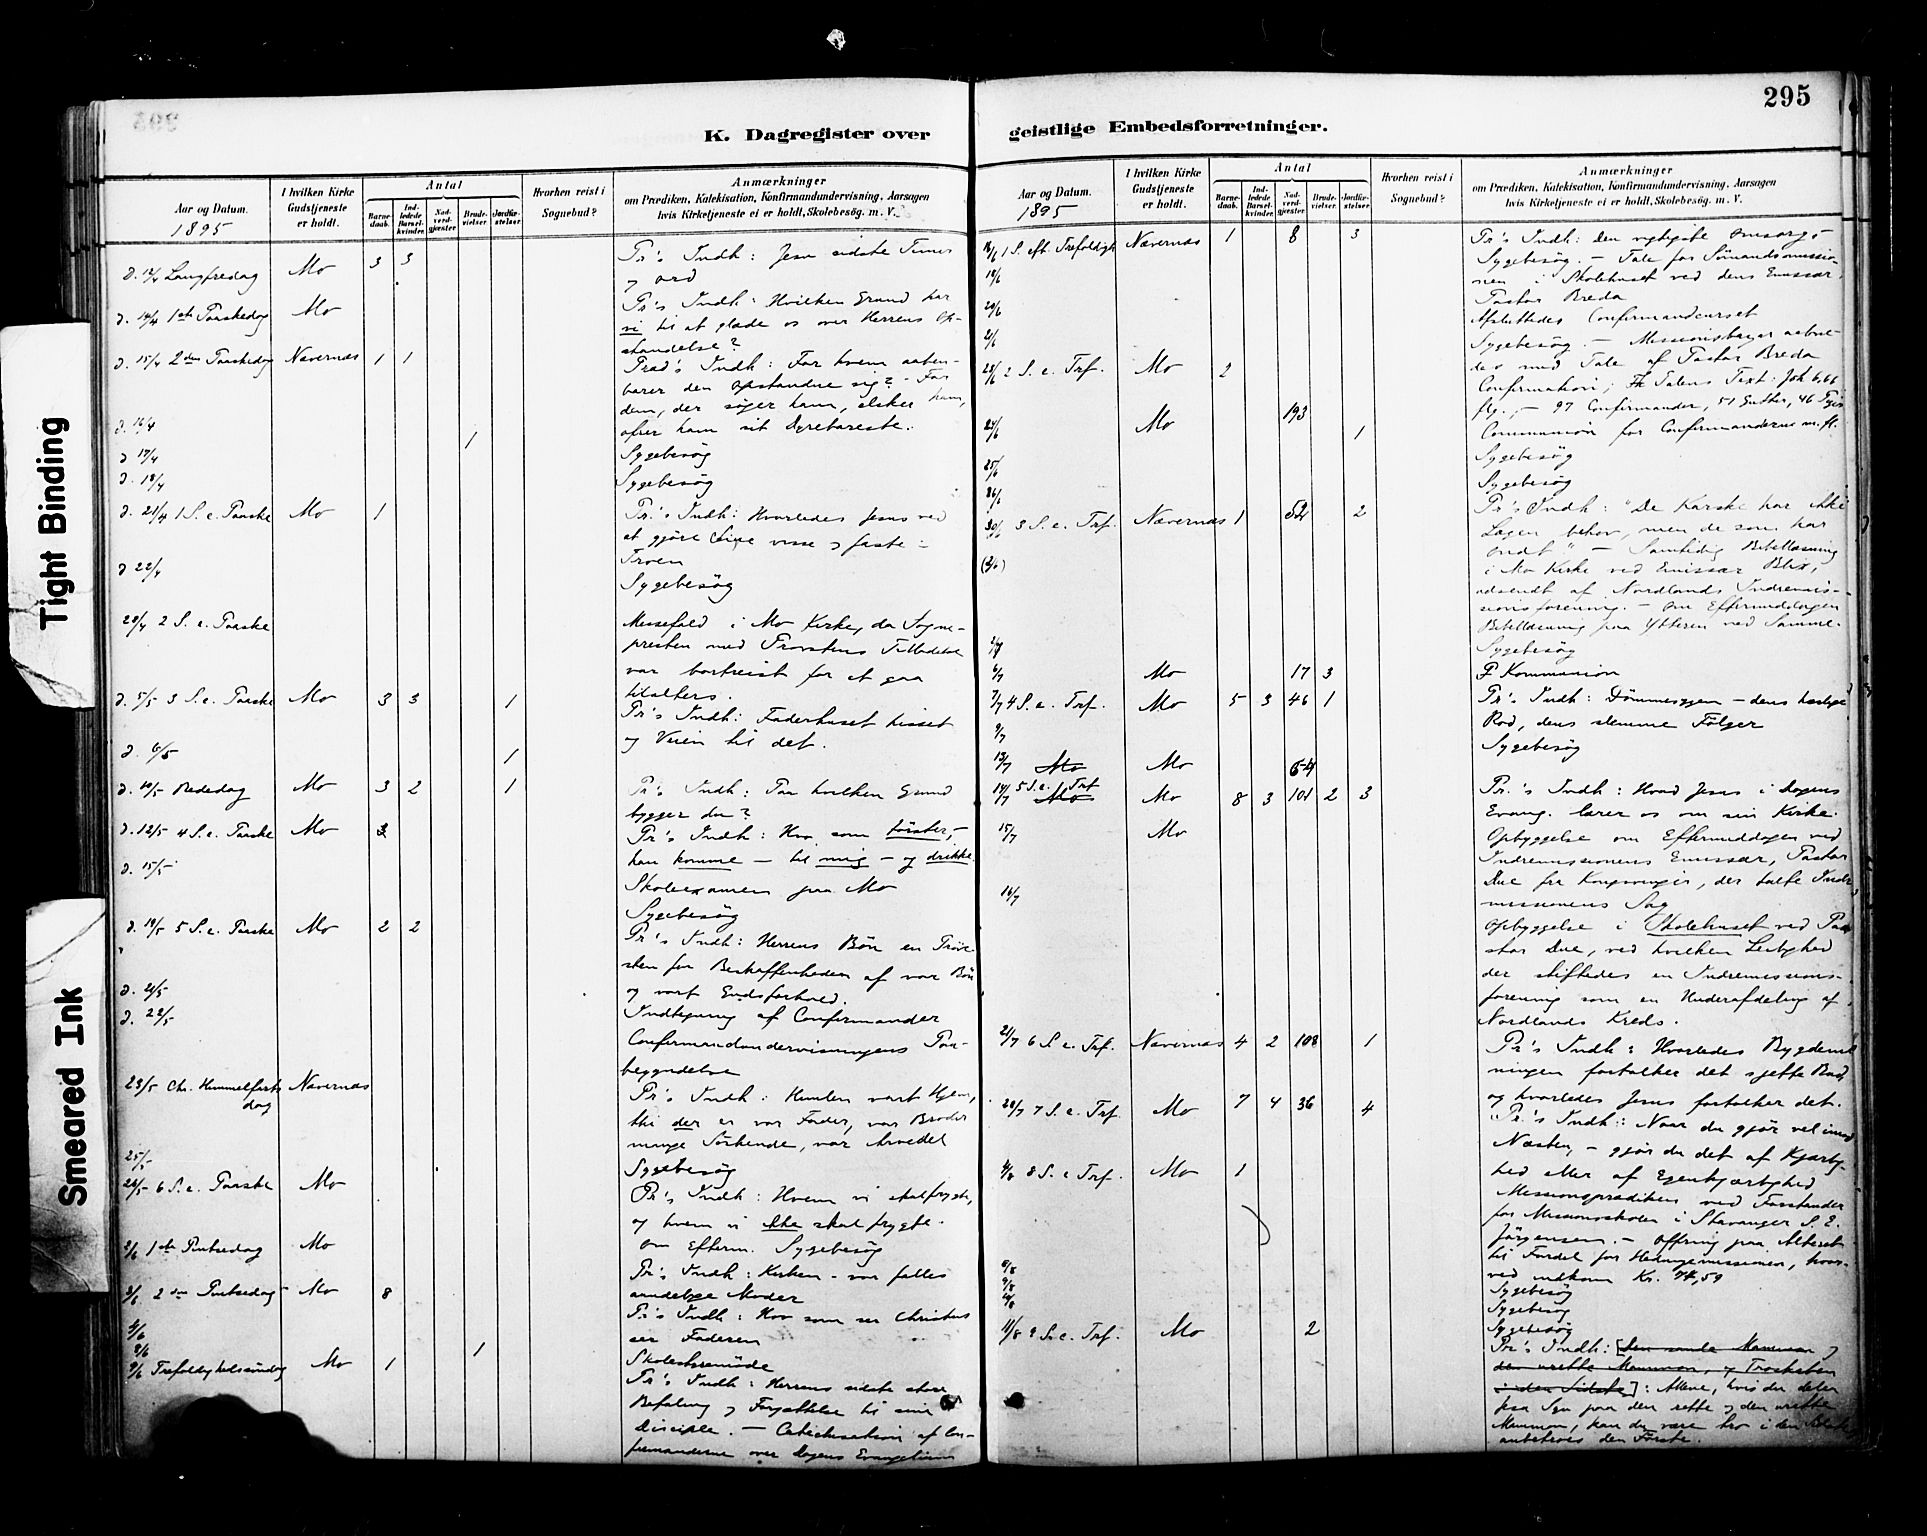 295
K. Dagregister over geistlige Embedsforretninger.
Aar og Datum.
1895
I hvilken Kirke Gudstjeneste er holdt.
Antal
Barnedaab.
Indledede Barselkvinder.
Nadverdgjæster
Brudevielser.
Jordfæstelser.
Hvorhen reist i Sognebud?
Anmærkninger
om Prædiken, Katekisation, Konfirmandundervisning, Aarsagen
hvis Kirketjeneste ei er holdt, Skolebesög. m. V.
d. 12/4 Langfredag Mo 3 3 Pr's Indh: Jesu sidste Timer
og ord
d. 14/4 1ste Paaskedag Mo Pr's Indh: Hvilken Grund har
vi til at glæde os over Herrens Op-
standelse?
d. 15/4 2den Paaskedag Nævernes 1 1 Præd's Indh: For hvem aaben-
barer den opstandne sig? - For
dem, der søger ham, elsker ham,
ofrer ham sit dyrebareste.
d. 16/4 1
d 17/4 Sygebesög
d. 18/4 Sygebesög
d. 21/4 1 S. e. Paaske Mo 1 Pr.'s Indh: Hvorledes Jesus ved
at gjöre sine visse og faste i
Troen
d 22/4 Sygebesög
28/4 2 S. e. Paaske Messefald i Mo Kirke, da Sogne-
presten med Provstens Tilladelse
var bortreist for at gaa
tilalters.
d. 5/5 3 S. e. Paaske Mo 3 3 1 Pr's Indh: Faderhuset hisset
og Veien til det.
d. 6/5 1
d. 10/5 Bededag Mo 3 2 1 Pr's Indh: Paa hvilken Grund
bygger du?
d. 12/5 4 S. e. Paaske Mo 3 Pr's Indh: Hvo som törster,-
han komme - til mig - og drikke.
d. 15/5 Skoleexamen paa Mo
Sygebesög
d. 19/5 5 S. e. Paaske Mo 2 2 Pr's Indh: Herrens Bön en Pröve-
sten for Beskaffenheden af vor Bön
og vort Gudsforhold.
d. 21/5 Indtegning af Confirmander
d. 22/5 Confirmandundervisningens Paa-
begyndelse
23/5 Chr. Himmelfarts dag Nævernes Pr's Indh: Himlen vort Hjem,
thi der er vor Fader, vor Broder
mange Söskende, vor Arvedel
25/5 Sygebesög
26/5 6 S. e. Paaske Mo Pr's Indh: Hvem vi skal frygte,
og hvem vi ikke skal frygte.
Om Efterm. Sygebesög
2/6 1ste Pintsedag Mo Pr's Indh: Kirken - vor fælles
aandelige Moder
3/6 2den Pintsedag Mo 8 Pr's Indh: Hvo som ser Christus
ser Faderen
4/6 Skolestyremöde
8/6 1
9/6 Trefoldighedssöndag Mo 1 Pr's Indh: Herrens sidste store
Befaling og Forjættelse til sine
Disciple. - Catechisation af Con-
firmanderne over Dagens Evangelium
Aar og Datum.
1895
I hvilken Kirke Gudstjeneste er holdt.
Antal
Barnedaab.
Indledede Barselkvinder.
Nadverdgjæster
Brudevielser.
Jordfæstelser.
Hvorhen reist i Sognebud?
Anmærkninger
om Prædiken, Katekisation, Konfirmandundervisning, Aarsagen
hvis Kirketjeneste ei er holdt, Skolebesög. m. V.
16/6 1 S. eft Trefoldigh Nævernes 1 8 3 Pr's Indh: Den vigtigste Omsorg -
Sygebesög. - Tale for Sömandsmissio-
nen i Skolehuset ved dens Emissær
Pastor Breda
Afsluttedes Confirmandcurset
Sygebesög. - Missionsbazar aabne-
des med Tale af Pastor Breda
23/6 2 S. e. Trf. Mo 2 Confirmation; Talens Text: Joh 6,66
flg. - 97 Confirmander, 51 Gutter, 46 Piger
24/6 Mo 193 1 Communion for Confirmanderne m. fl.
25/6 Sygebesög
26/6 Sygebesög
30/6 3 S. e. Trf. Nævernes 1 52 2 Pr's Indh: "De Karske har ikke
Lægen behov, men de som har
ondt" - Samtidig Bibellæsning
i Mo Kirke ved Emissær Blix,
udsendt af Nordlands Indremis-
sionsforening. - Om Eftermiddagen
Bibellæsning paa Ytteren ved Samme.
2/7 Sygebesög
6/7 Mo 17 3 Kommunion
7/7 4 S. e. Trf. Mo 5 3 46 1 Pr's Indh: Dömmesygen - dens hæslige
Rod, dens slemme Fölger
9/7 Sygebesög
13/7 Mo Mo 54
14/7 5 S. e. Trf Mo Mo 8 3 101 2 3 Pr.'s Indh: Hvad Jesus i dagens
Evang. lærer os om sin Kirke.
15/7 Mo Opbyggelse om Eftermiddagen ved
Indremissionens Emissær, Pastor
Due fra Kongsvinger, der talte Indre
missionens Sag
16/7 Opbyggelse i Skolehuset ved Pa-
stor Due, ved hvilken Leilighed
der stiftedes en Indremissions-
forening som en Underafdeling af
Nordlands Kreds.
21/7 6 S. e. Trf. Nævernes 4 2 108 1 Pr's Indh: Hvorledes Bygdeme-
ningen fortolker det sjette Bud,
og hvorledes Jesus fortolker det.
28/7 7 S. e. Trf. Mo 7 4 36 4 Pr's Indh: Naar du gjör vel imod
Næsten, - gjör du det af Kjærlig-
hed eller af Egenkjærlighed
4/8 8 S. e Trf. Mo 1 Missionsprædiken ved Forstander
for Missionsskolen i Stavanger S. E.
Jörgensen. - Offring paa Alteret
til Fordel for Hedningemissionen, hvor-
ved indkom Kr. 74,59
6/8 Sygebesög
9/8 Sygebesög
Sygebesög
11/8 9 S. e. Trf. Mo 2 Pr's Indh: [den sande Mammon og
den urette Mammon, og Troskaben
i den Sidste]: Allene, hvis du deler
Syn paa den rette og den urette
Mammon, kan du være tro i den Sidste
anbetroes den Förste.
Tight Binding
Smeared Ink